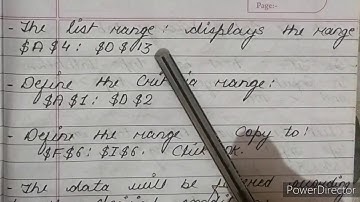 Page:-
- The list range: displays the range
$A$4: $D$13
- Define the Criteria range:
$A$1: $D$2
- Define the range Copy to:
$F$6: $I$6. Click OK.
- The data will be filtered according
PowerDirector